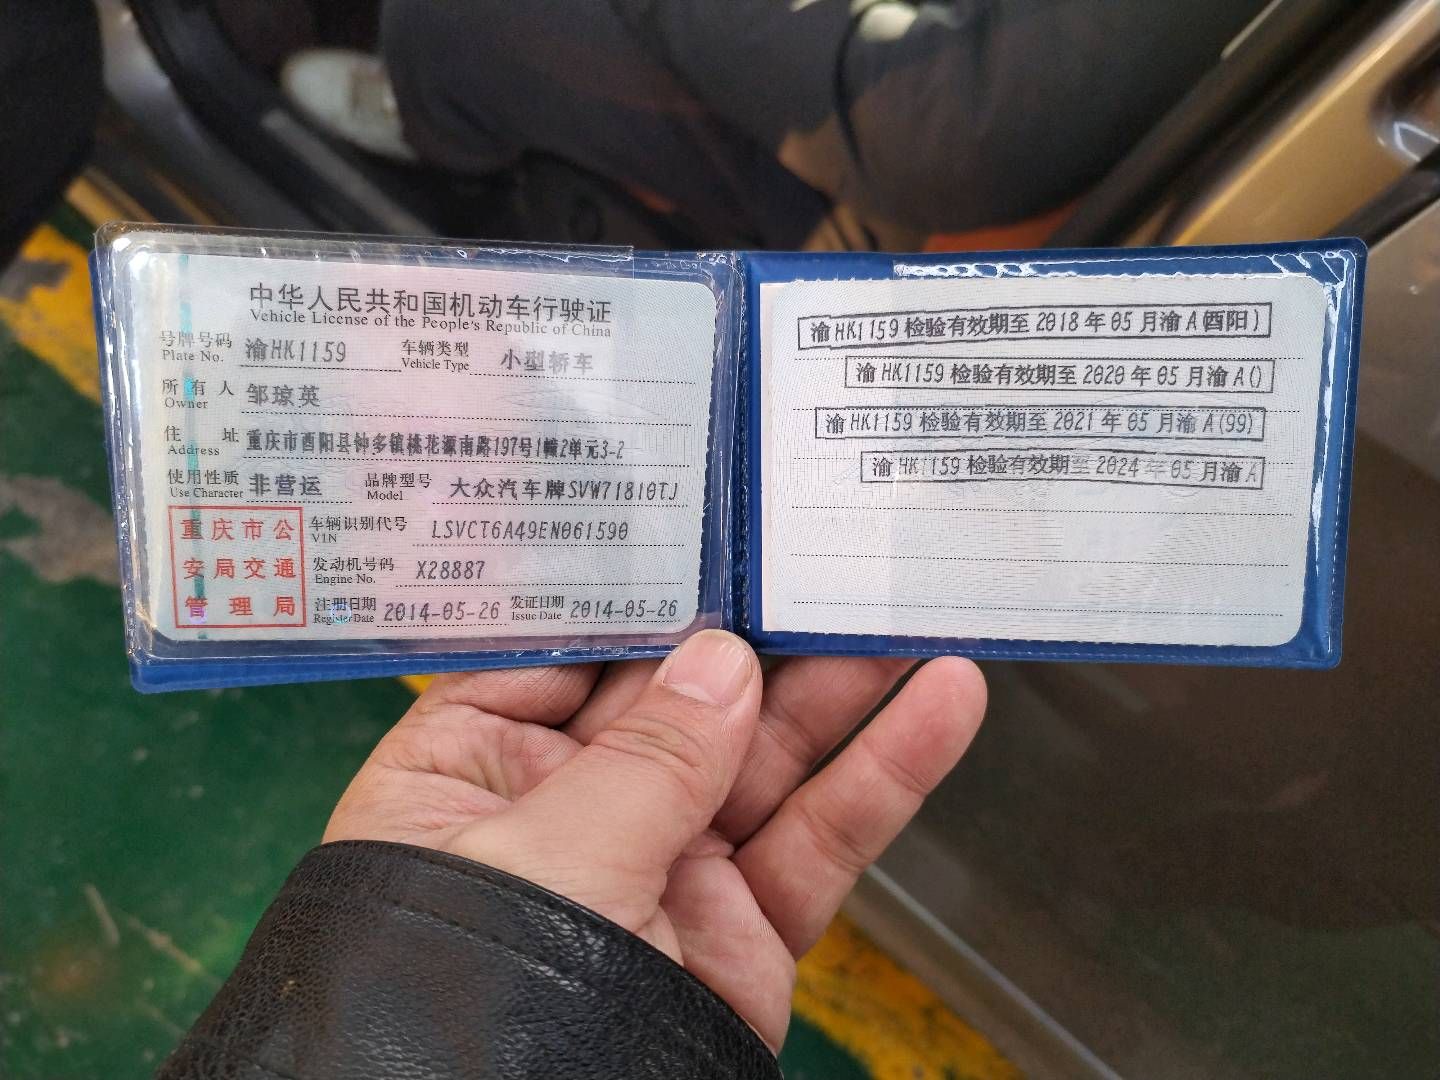 中华人民共和国机动车行驶证
Vehicle License of the People's Republic of China
号牌号码 渝HK1159 车辆类型 小型轿车
Plate No. Vehicle Type
所有人 邹琼英
Owner
住址 重庆市酉阳县钟多镇桃花源南路197号1幢2单元3-2
Address
使用性质 非营运 品牌型号 大众汽车牌SVW71810TJ
Use Character Model
重庆市公
安局交通
管理局
车辆识别代号 LSVCT6A49EN061590
VIN
发动机号码 X28887
Engine No.
注册日期 2014-05-26 发证日期 2014-05-26
Register Date Issue Date
渝HK1159检验有效期至2018年05月渝A(酉阳)
渝HK1159检验有效期至2020年05月渝A()
渝HK1159检验有效期至2021年05月渝A(99)
渝HK1159检验有效期至2024年05月渝A